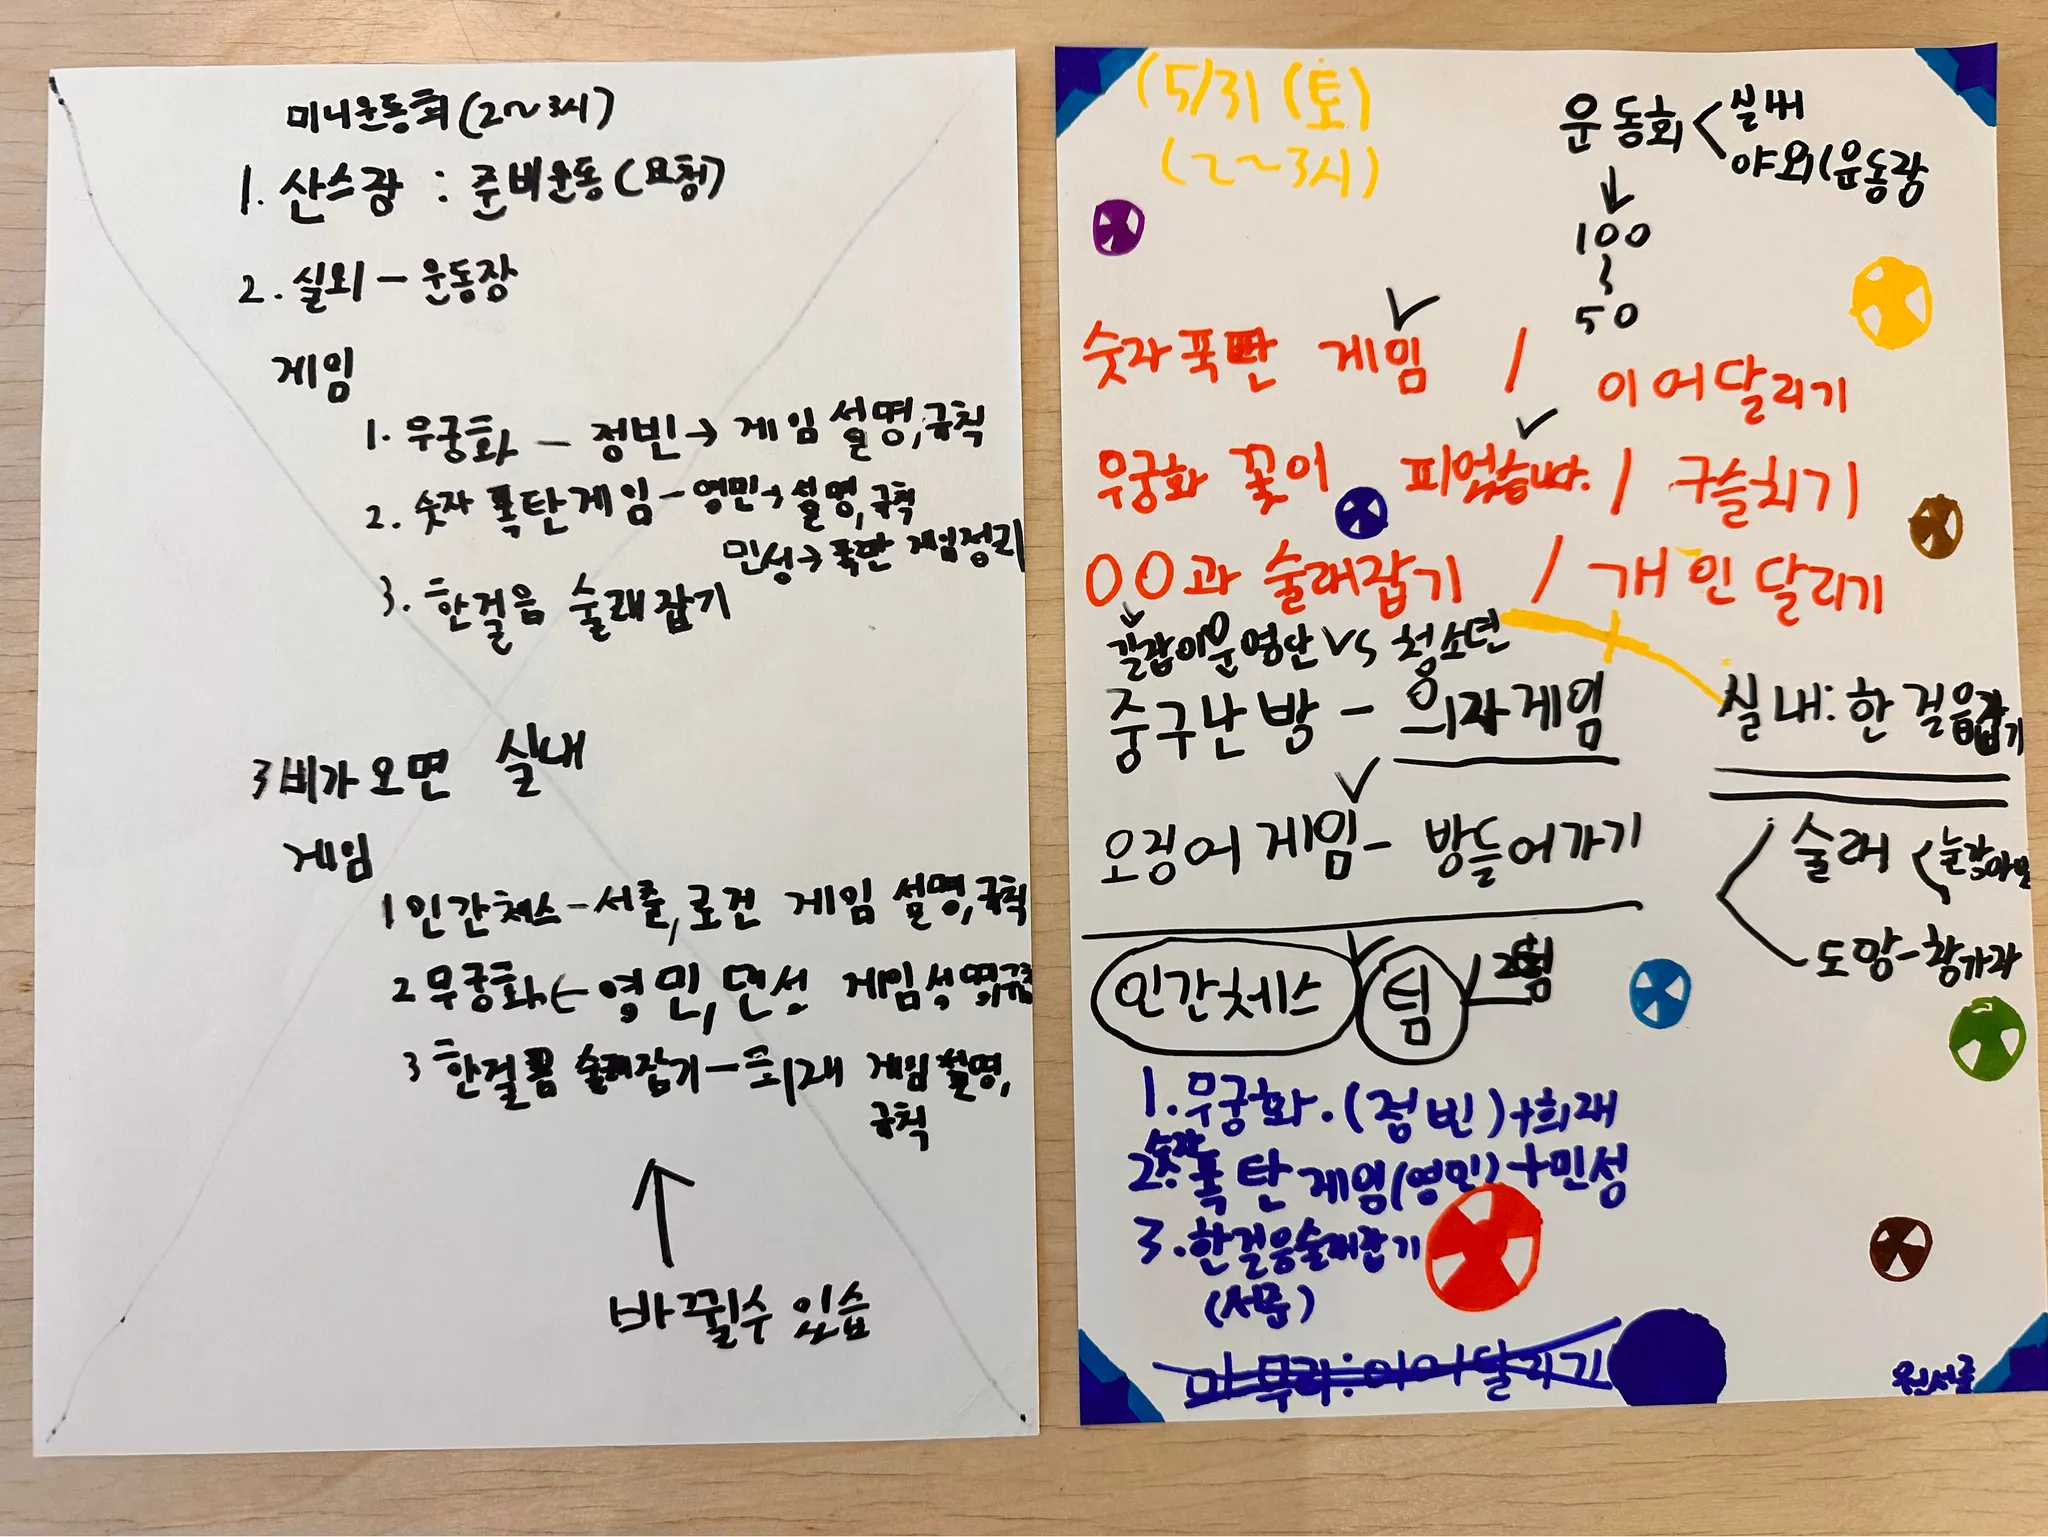 미니운동회(2~3시)
1. 산스장 : 준비운동(요청)
2. 실외 - 운동장
게임
1. 무궁화 - 정빈→ 게임 설명,규칙
2. 숫자 폭탄게임-영민→설명,규칙
민성→폭탄 게임정리
3. 한걸음 술래잡기
3 비가 오면 실내
게임
1 인간체스-서준,로건 게임 설명,규칙
2 무궁화-영민, 민성 게임
3 한걸음 술래잡기-희재 게임 설명,
규칙
↑
바뀔수 있습
(5/31 (토)
(2~3시)
운동회 < 실내
야외(운동장
↓
100
~
50
숫자폭탄 게임 / 이어달리기
무궁화 꽃이 피었습니다. / 구슬치기
OO과 술래잡기 / 개인달리기
길잡이운영단 VS 청소년
중구난방 - 의자게임
실내:한걸음잡기
오징어 게임- 방들어가기
술래
도망-
인간체스 팀
1. 무궁화.(정빈)+희재
2. 숫자 폭탄게임(영민)+민성
3. 한걸음술래잡기
마무리:이어달리기